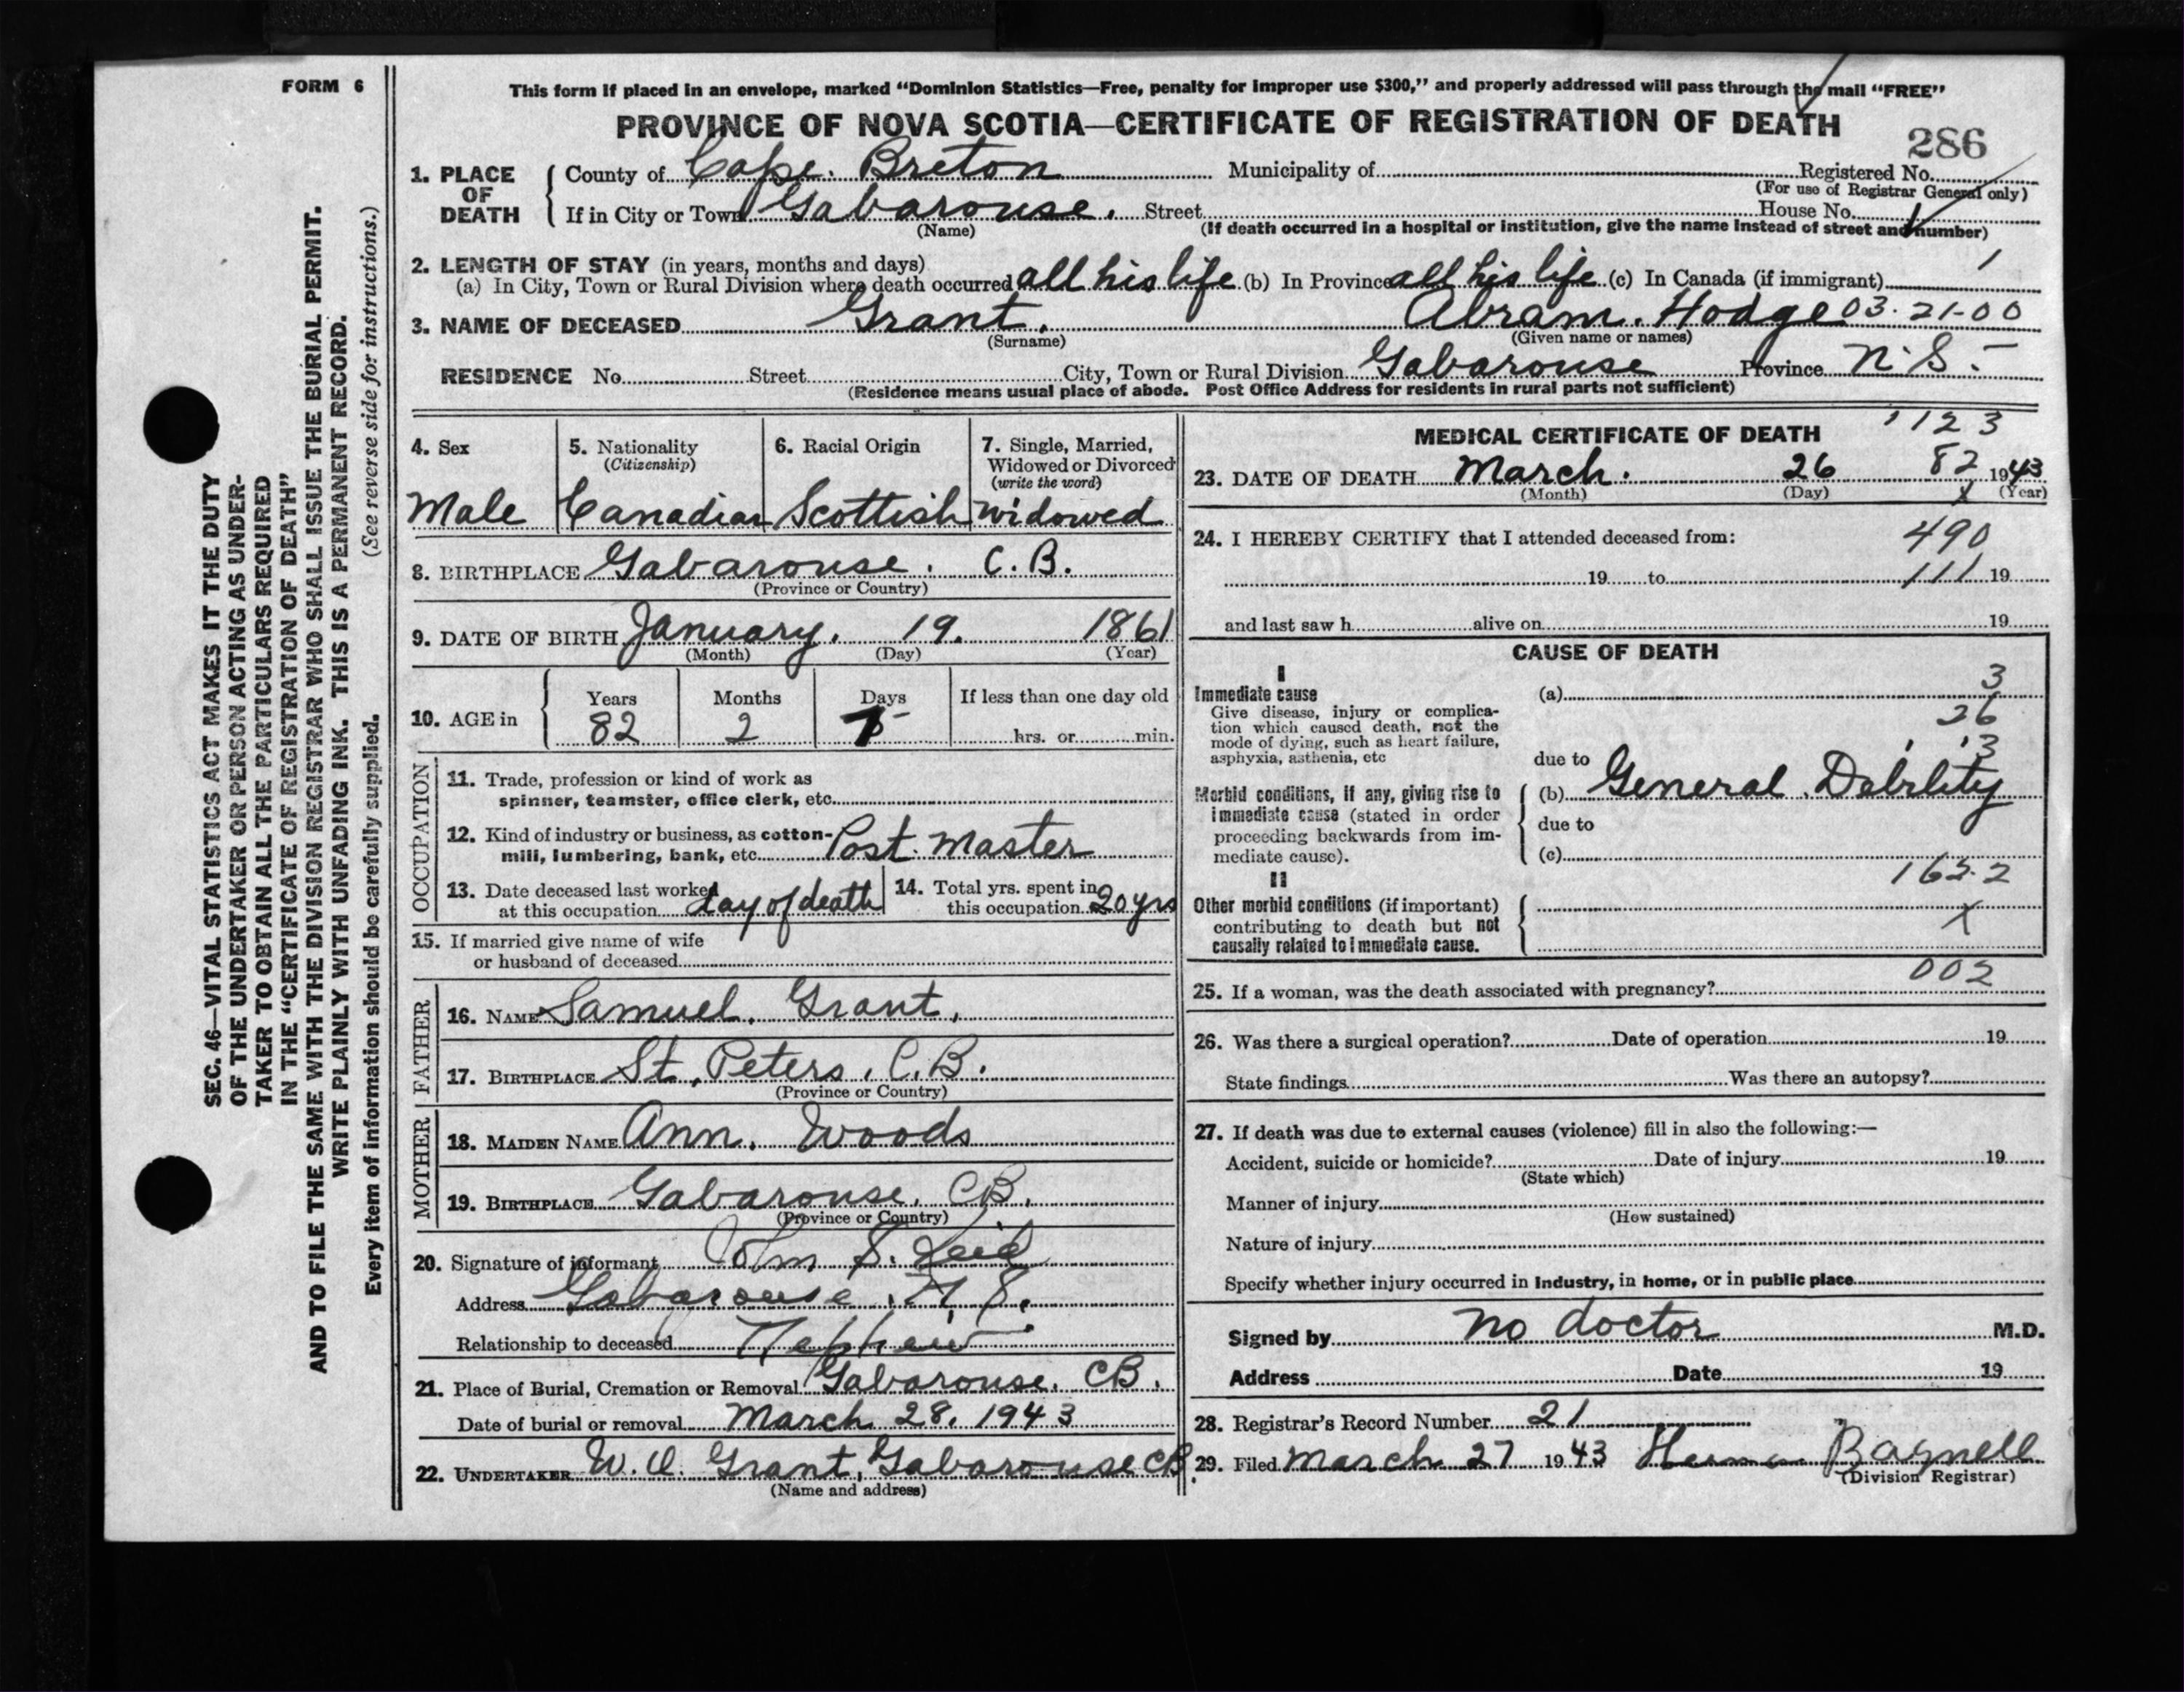 FORM 6
This form if placed in an envelope, marked “Dominion Statistics—Free, penalty for improper use $300,” and properly addressed will pass through the mail “FREE”
PROVINCE OF NOVA SCOTIA—CERTIFICATE OF REGISTRATION OF DEATH
286
1. PLACE OF DEATH
County of Cape. Breton Municipality of Registered No.
(For use of Registrar General only)
If in City or Town Gabarouse. Street House No.
(Name) (If death occurred in a hospital or institution, give the name instead of street and number)
2. LENGTH OF STAY (in years, months and days)
(a) In City, Town or Rural Division where death occurred all his life (b) In Province all his life (c) In Canada (if immigrant)
3. NAME OF DECEASED Grant. Abram. Hodge 03-21-00
(Surname) (Given name or names)
RESIDENCE No. Street City, Town or Rural Division Gabarouse Province N.S.
(Residence means usual place of abode. Post Office Address for residents in rural parts not sufficient)
4. Sex 5. Nationality 6. Racial Origin 7. Single, Married,
(Citizenship) Widowed or Divorced
(write the word)
Male Canadian Scottish Widowed
8. BIRTHPLACE Gabarouse. C.B.
(Province or Country)
9. DATE OF BIRTH January. 19. 1861
(Month) (Day) (Year)
10. AGE in Years Months Days If less than one day old
82 2 hrs. or min.
OCCUPATION
11. Trade, profession or kind of work as
spinner, teamster, office clerk, etc.
12. Kind of industry or business, as cotton-
mill, lumbering, bank, etc. Post. Master
13. Date deceased last worked
at this occupation day of death
14. Total yrs. spent in
this occupation 20 yrs
15. If married give name of wife
or husband of deceased
FATHER
16. NAME Samuel. Grant.
17. BIRTHPLACE St. Peters. C.B.
(Province or Country)
MOTHER
18. MAIDEN NAME Ann. Woods
19. BIRTHPLACE Gabarouse. CB.
(Province or Country)
20. Signature of informant John S. Reid
Address Gabarouse. N.S.
Relationship to deceased Nephew
21. Place of Burial, Cremation or Removal Gabarouse. CB.
Date of burial or removal March 28. 1943
22. UNDERTAKER Grant, Gabarouse CB.
(Name and address)
MEDICAL CERTIFICATE OF DEATH
1123
23. DATE OF DEATH March. 26 82 1943
(Month) (Day) (Year)
24. I HEREBY CERTIFY that I attended deceased from: 490
19 to 111 19
and last saw h alive on 19
CAUSE OF DEATH
I
Immediate cause (a) 3
Give disease, injury or complica-
tion which caused death, not the 26
mode of dying, such as heart failure,
asphyxia, asthenia, etc due to 3
Morbid conditions, if any, giving rise to (b) General. Debility
immediate cause (stated in order
proceeding backwards from im- due to
mediate cause). (c)
II 162.2
Other morbid conditions (if important)
contributing to death but not X
causally related to immediate cause.
002
25. If a woman, was the death associated with pregnancy?
26. Was there a surgical operation? Date of operation 19
State findings Was there an autopsy?
27. If death was due to external causes (violence) fill in also the following:—
Accident, suicide or homicide? Date of injury 19
(State which)
Manner of injury
(How sustained)
Nature of injury
Specify whether injury occurred in industry, in home, or in public place
Signed by no doctor M.D.
Address Date 19
28. Registrar's Record Number 21
29. Filed March 27 1943 Bagnell
(Division Registrar)
SEC. 46—VITAL STATISTICS ACT MAKES IT THE DUTY
OF THE UNDERTAKER OR PERSON ACTING AS UNDER-
TAKER TO OBTAIN ALL THE PARTICULARS REQUIRED
IN THE “CERTIFICATE OF REGISTRATION OF DEATH”
AND TO FILE THE SAME WITH THE DIVISION REGISTRAR WHO SHALL ISSUE THE BURIAL PERMIT.
WRITE PLAINLY WITH UNFADING INK. THIS IS A PERMANENT RECORD.
Every item of information should be carefully supplied. (See reverse side for instructions.)